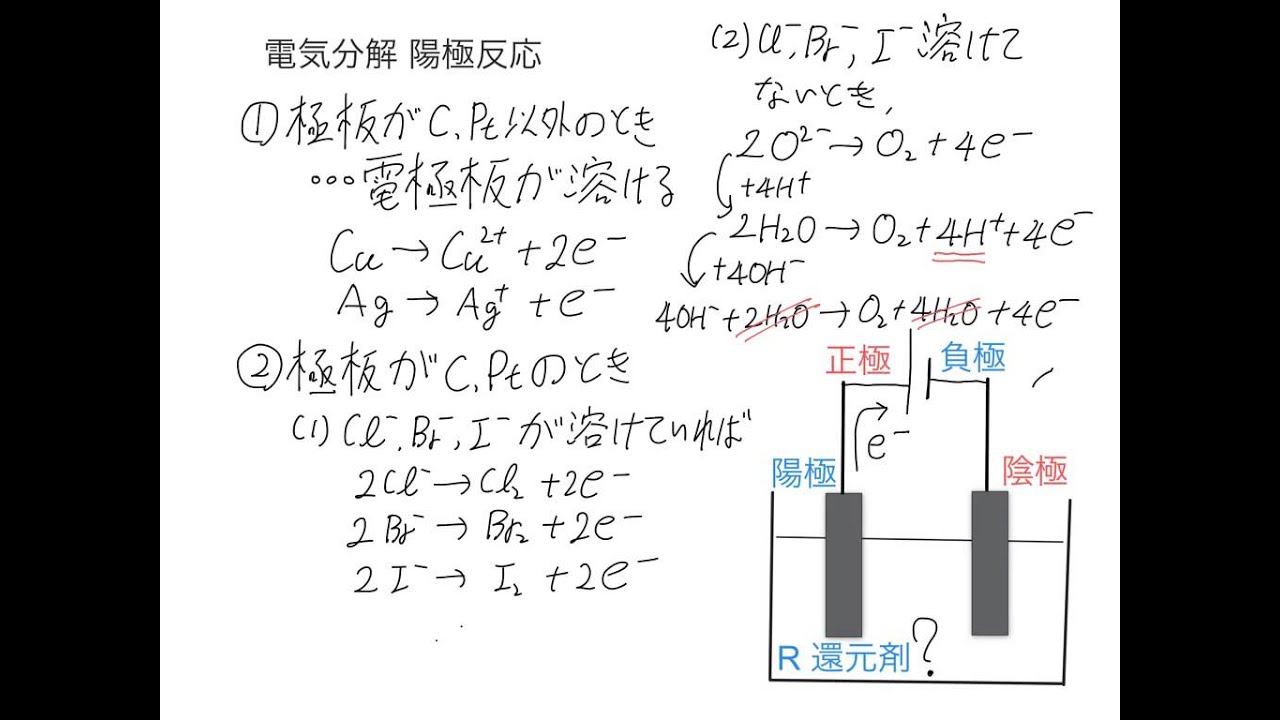 電気分解 陽極反応
①極板がC,Pt以外のとき
…電極板が溶ける
Cu→Cu²⁺+2e⁻
Ag→Ag⁺+e⁻
②極板がC,Ptのとき
(1)Cl⁻,Br⁻,I⁻が溶けていれば
2Cl⁻→Cl₂+2e⁻
2Br⁻→Br₂+2e⁻
2I⁻→I₂+2e⁻
(2)Cl⁻,Br⁻,I⁻溶けて
ないとき,
2O²⁻→O₂+4e⁻
+4H⁺
2H₂O→O₂+4H⁺+4e⁻
+4OH⁻
4OH⁻+2H₂O→O₂+4H₂O+4e⁻
正極 負極
e⁻
陽極 陰極
R 還元剤?